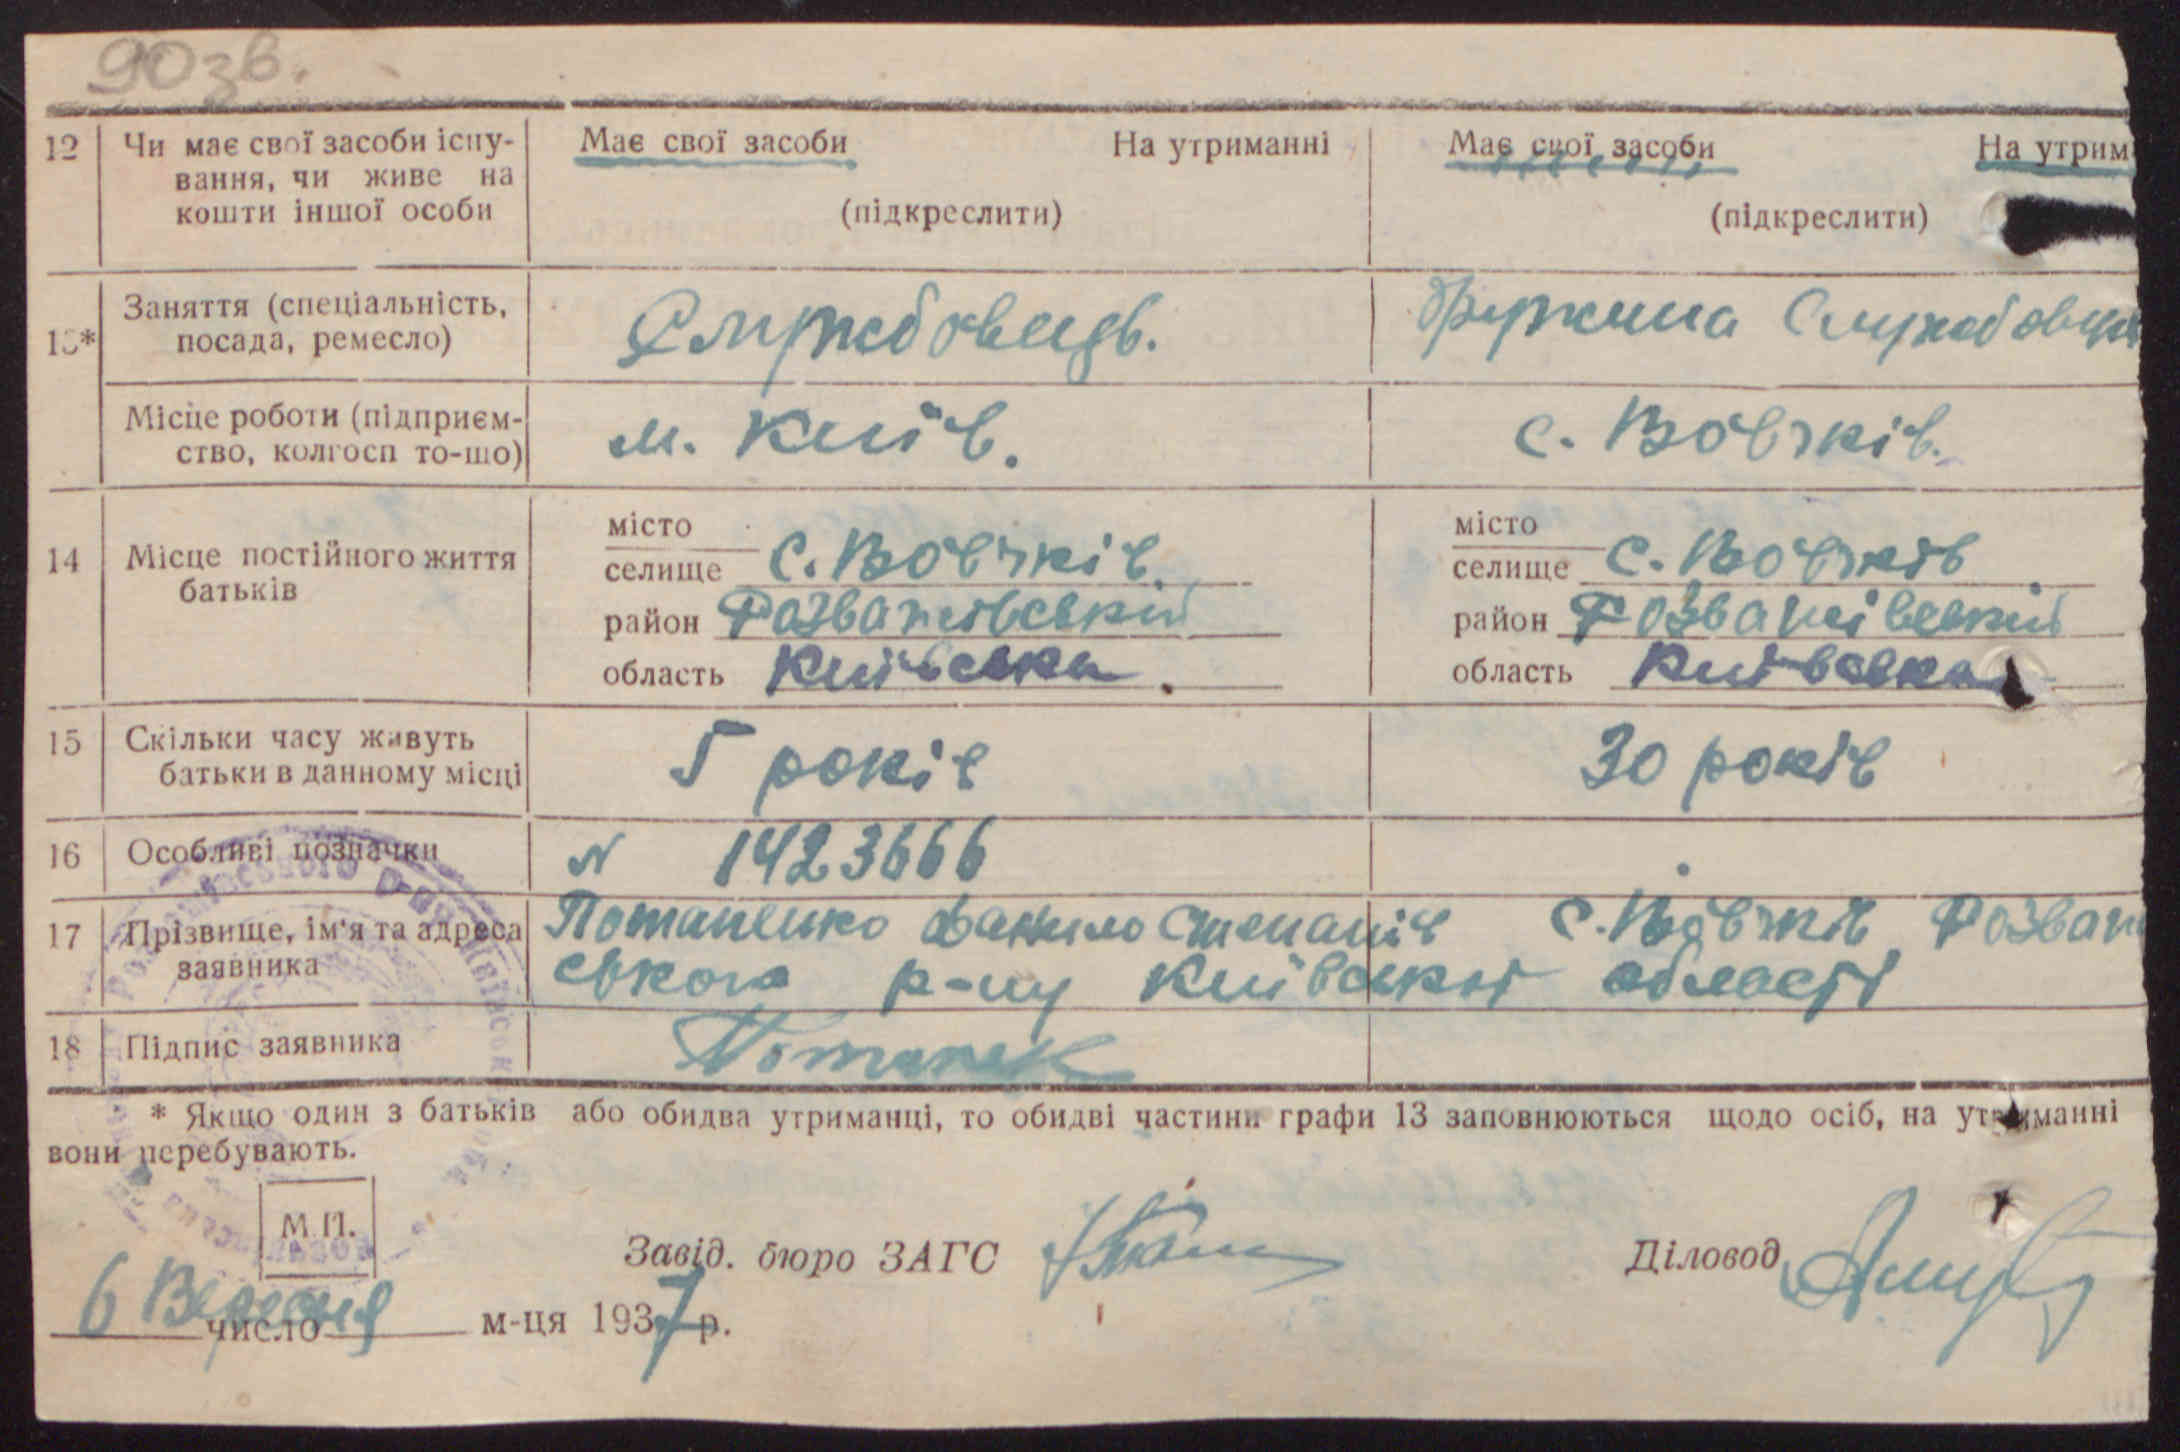 90зв.
12 Чи має свої засоби існу- Має свої засоби На утриманні Має свої засоби На утрим
вання, чи живе на
кошти іншої особи (підкреслити) (підкреслити)
13* Заняття (спеціальність, Службовець. дружина Службовця
посада, ремесло)
Місце роботи (підприєм- м. Київ. с. Вовчків.
ство, колгосп то-що)
місто місто
14 Місце постійного життя селище с. Вовчків селище с. Вовчків
батьків район Розважівський район Розважівський
область Київська область Київська
15 Скільки часу живуть 5 років 30 років
батьки в данному місці
16 Особливі позначки N 1423666
17 Прізвище, ім'я та адреса Потапенко Данило Степанів с. Вовчків Розваж
заявника ського р-ну Київської області
18 Підпис заявника Потапек
* Якщо один з батьків або обидва утриманці, то обидві частини графи 13 заповнюються щодо осіб, на утриманні
вони перебувають.
М.П.
Завід. бюро ЗАГС Діловод
6 Вересня число м-ця 1937 р.